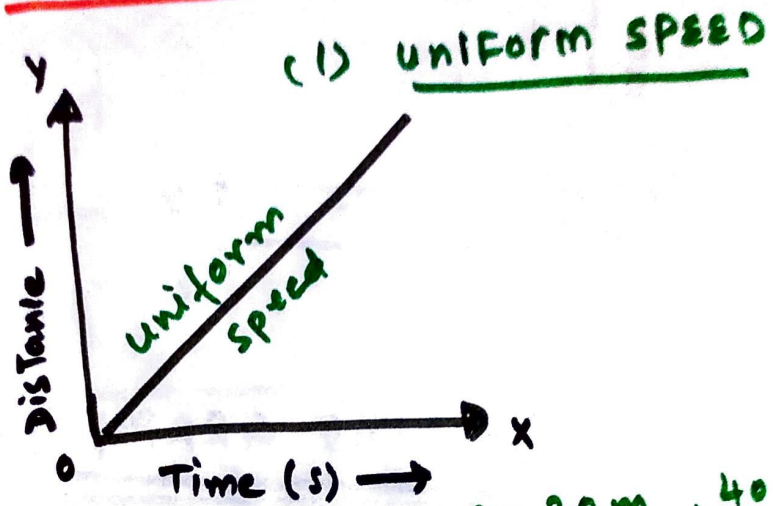 (1) UNIFORM SPEED
Y
Distance →
uniform
speed
0
Time (s) →
X
20m, 40